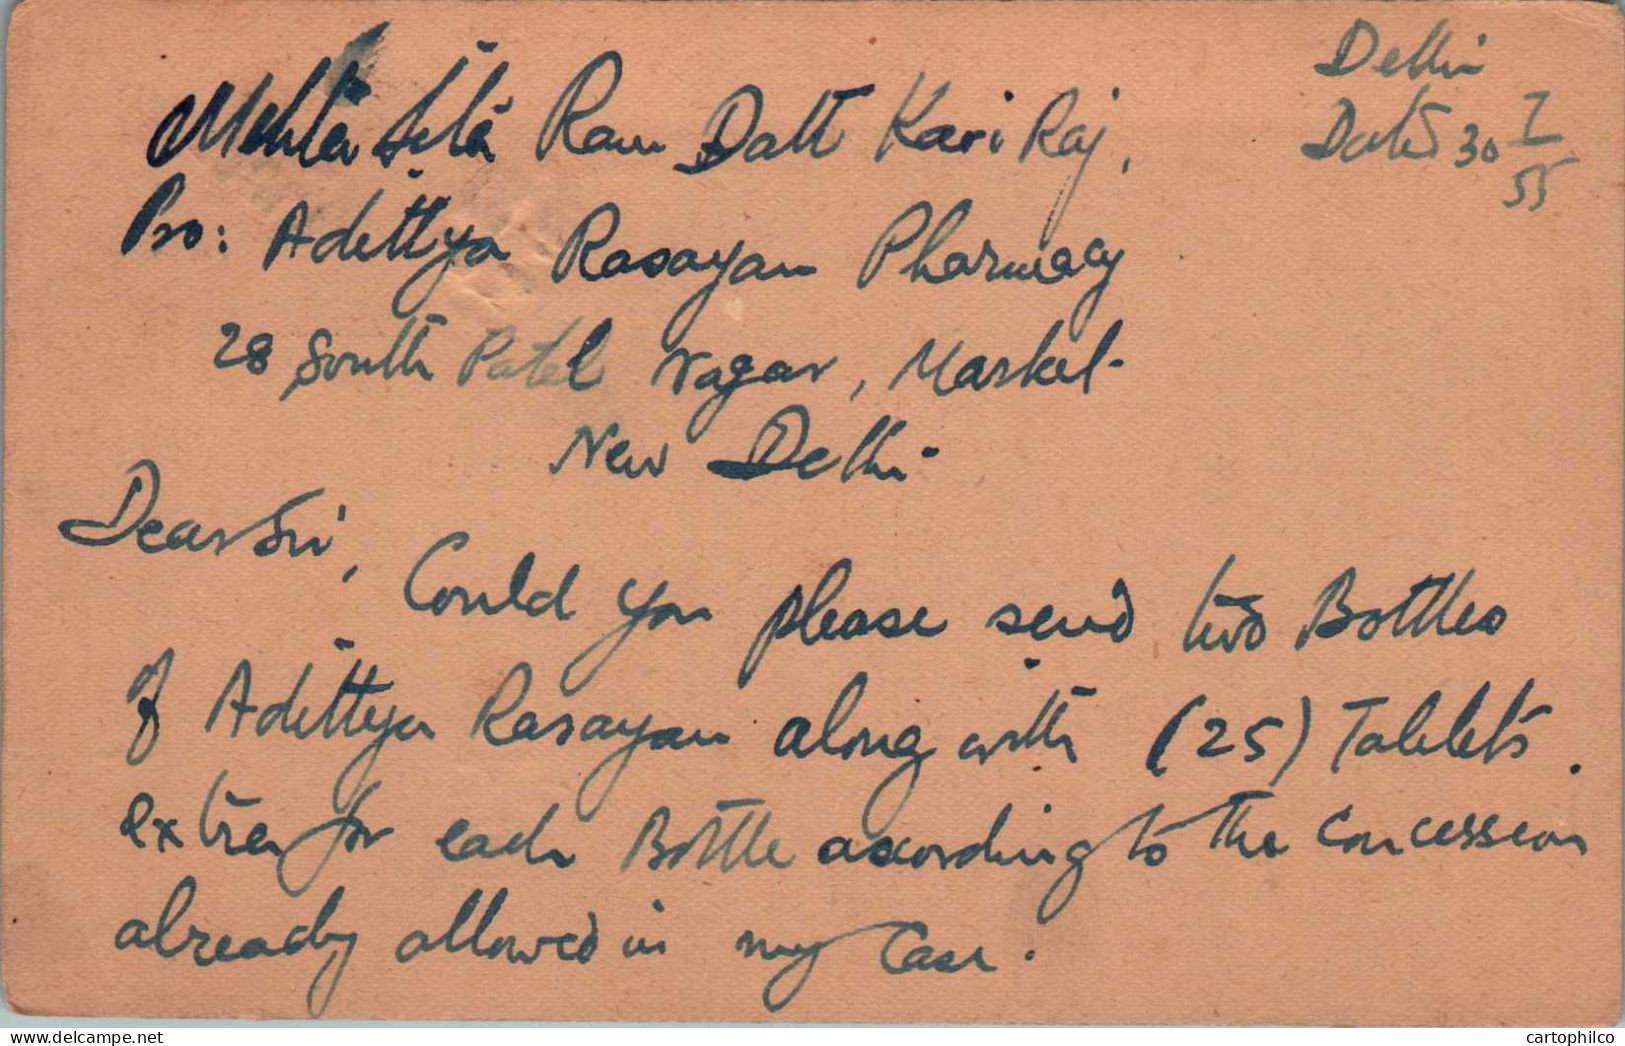 Delhi
Dated 30 I/55
Mehta Sita Ram Datt Kavi Raj,
Pro: Adittya Rasayan Pharmacy
28 South Patel Nagar, Market
New Delhi.
Dear Sir,
Could you please send two Bottles
of Adittya Rasayan along with (25) Tablets.
extra for each Bottle according to the concession
already allowed in my case.
cartophilco